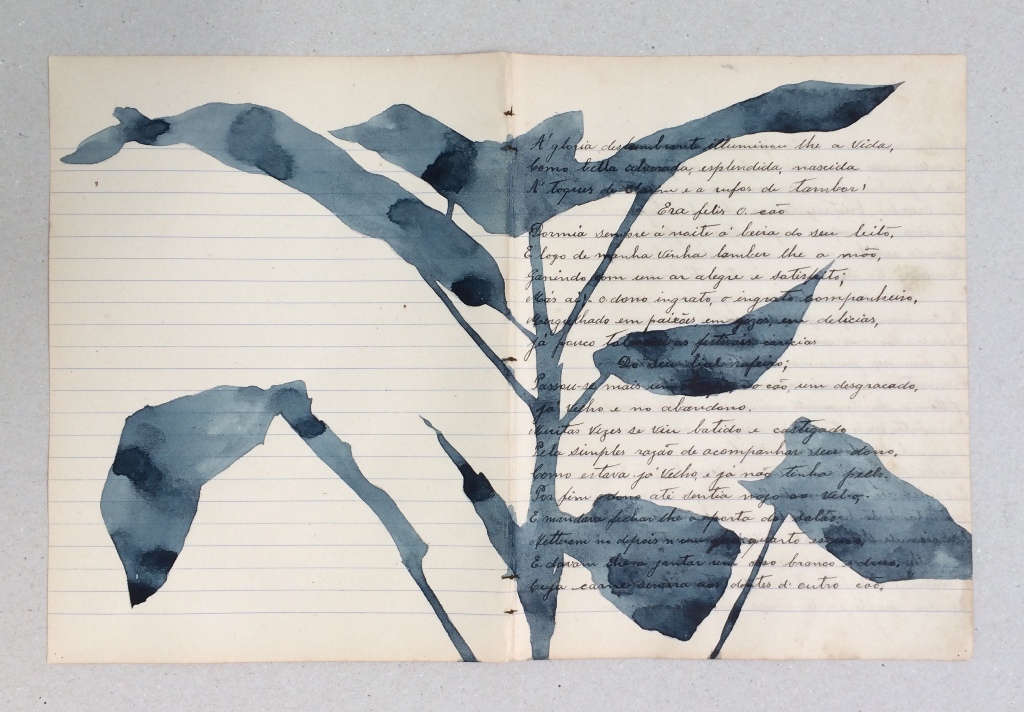 A' gloria deslumbrante illuminou lhe a vida,
Como bella alvorada, esplendida, nascida
A' toques de clarim e a rufos de tambor!
Era feliz o cão
Dormia sempre á noite á beira do seu leito,
E logo de manha vinha lamber lhe a mão,
Ganindo com um ar alegre e satisfeito;
Mas ai! o dono ingrato, o ingrato companheiro,
Mergulhado em paixões em gozos, em delicias,
Já pouco as festivas caricias
Do seu leal rafeiro;
Passou-se mais um o cão, um desgraçado,
já velho e no abandono.
Muitas vezes se viu batido e castigado
Pela simples razão de acompanhar seu dono,
Como estava já velho, e já não tinha
Por fim o dono até sentia nojo ao vel-o,
E mandava fechar lhe a porta do salão.
Metteram no depois n'um quarto escuro
E davam lhe a jantar um osso branco e duro,
Cuja carne servira aos dentes d'outro cão,